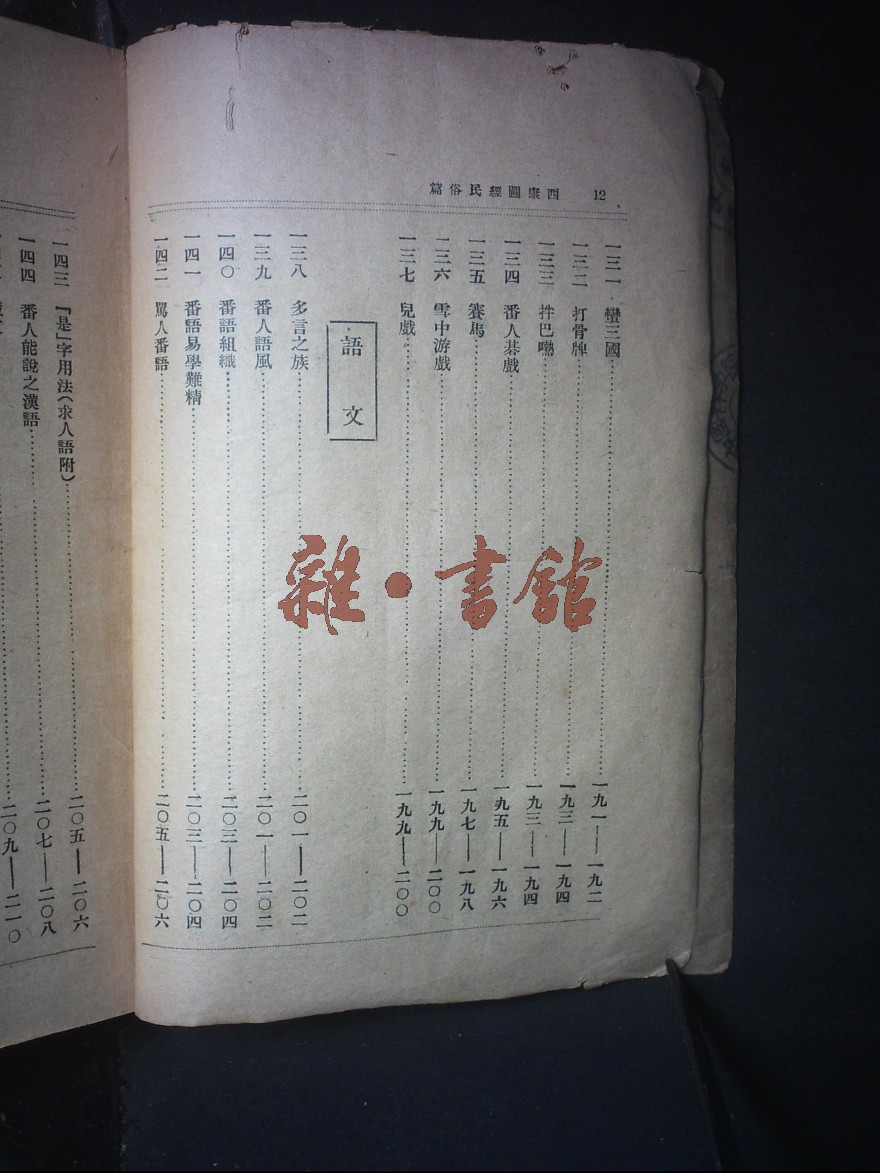 西康圖經民俗篇 12
一三一 蠻三國……一九一——一九二
一三二 打骨牌……一九三——一九四
一三三 拌巴嘞……一九三——一九四
一三四 番人棊戲……一九五——一九六
一三五 賽馬……一九七——一九八
一三六 雪中游戲……一九九——二〇〇
一三七 兒戲……一九九——二〇〇
語文
一三八 多言之族……二〇一——二〇二
一三九 番人語風……二〇一——二〇二
一四〇 番語組織……二〇三——二〇四
一四一 番語易學難精……二〇三——二〇四
一四二 罵人番語……二〇五——二〇六
一四三 「是」字用法(求人語附)……二〇五——二〇六
一四四 番人能說之漢語……二〇七——二〇八
二〇九——二一〇
雜·書館